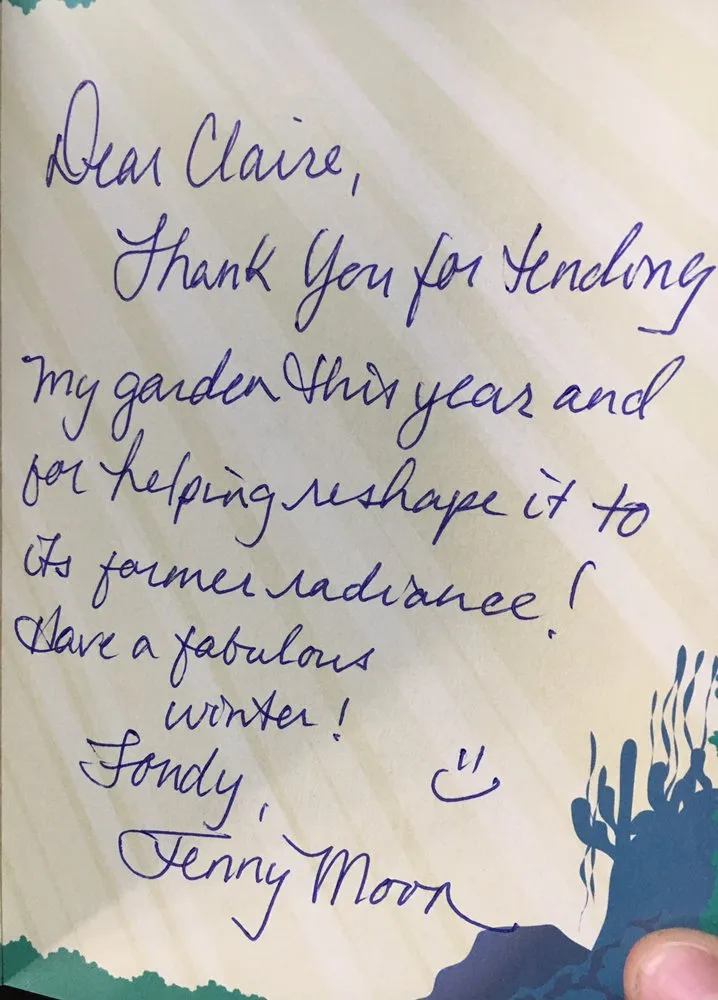 Dear Claire,
Thank You for tending
my garden this year and
for helping reshape it to
its former radiance!
Have a fabulous
winter!
Fondy,
Jenny Moon